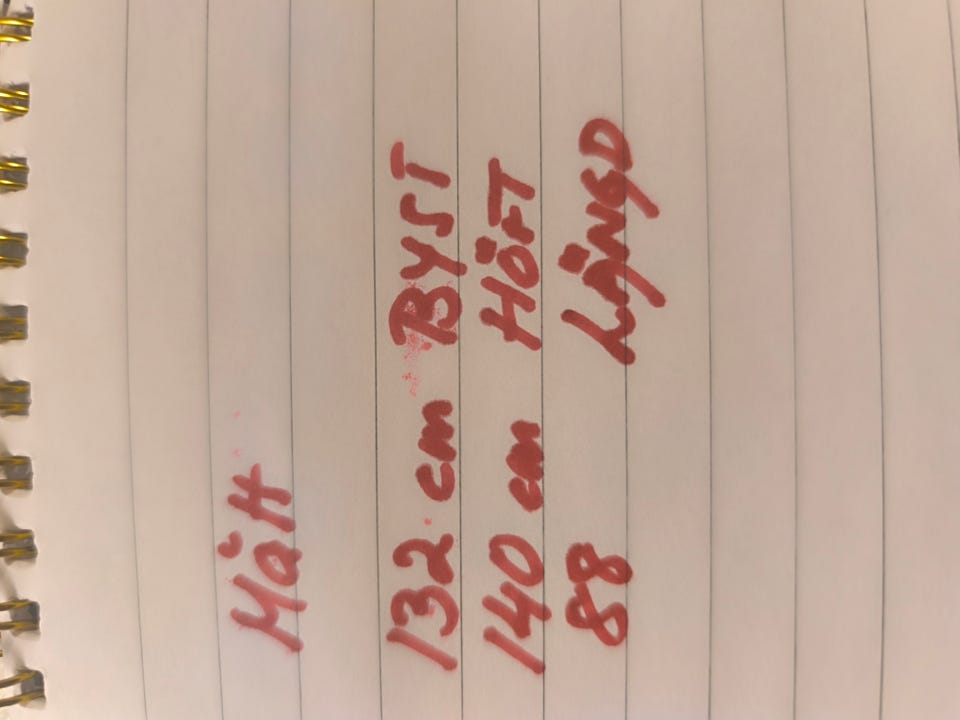 Mått
132 cm BYST
140 cm HÖFT
88 LÄNGD